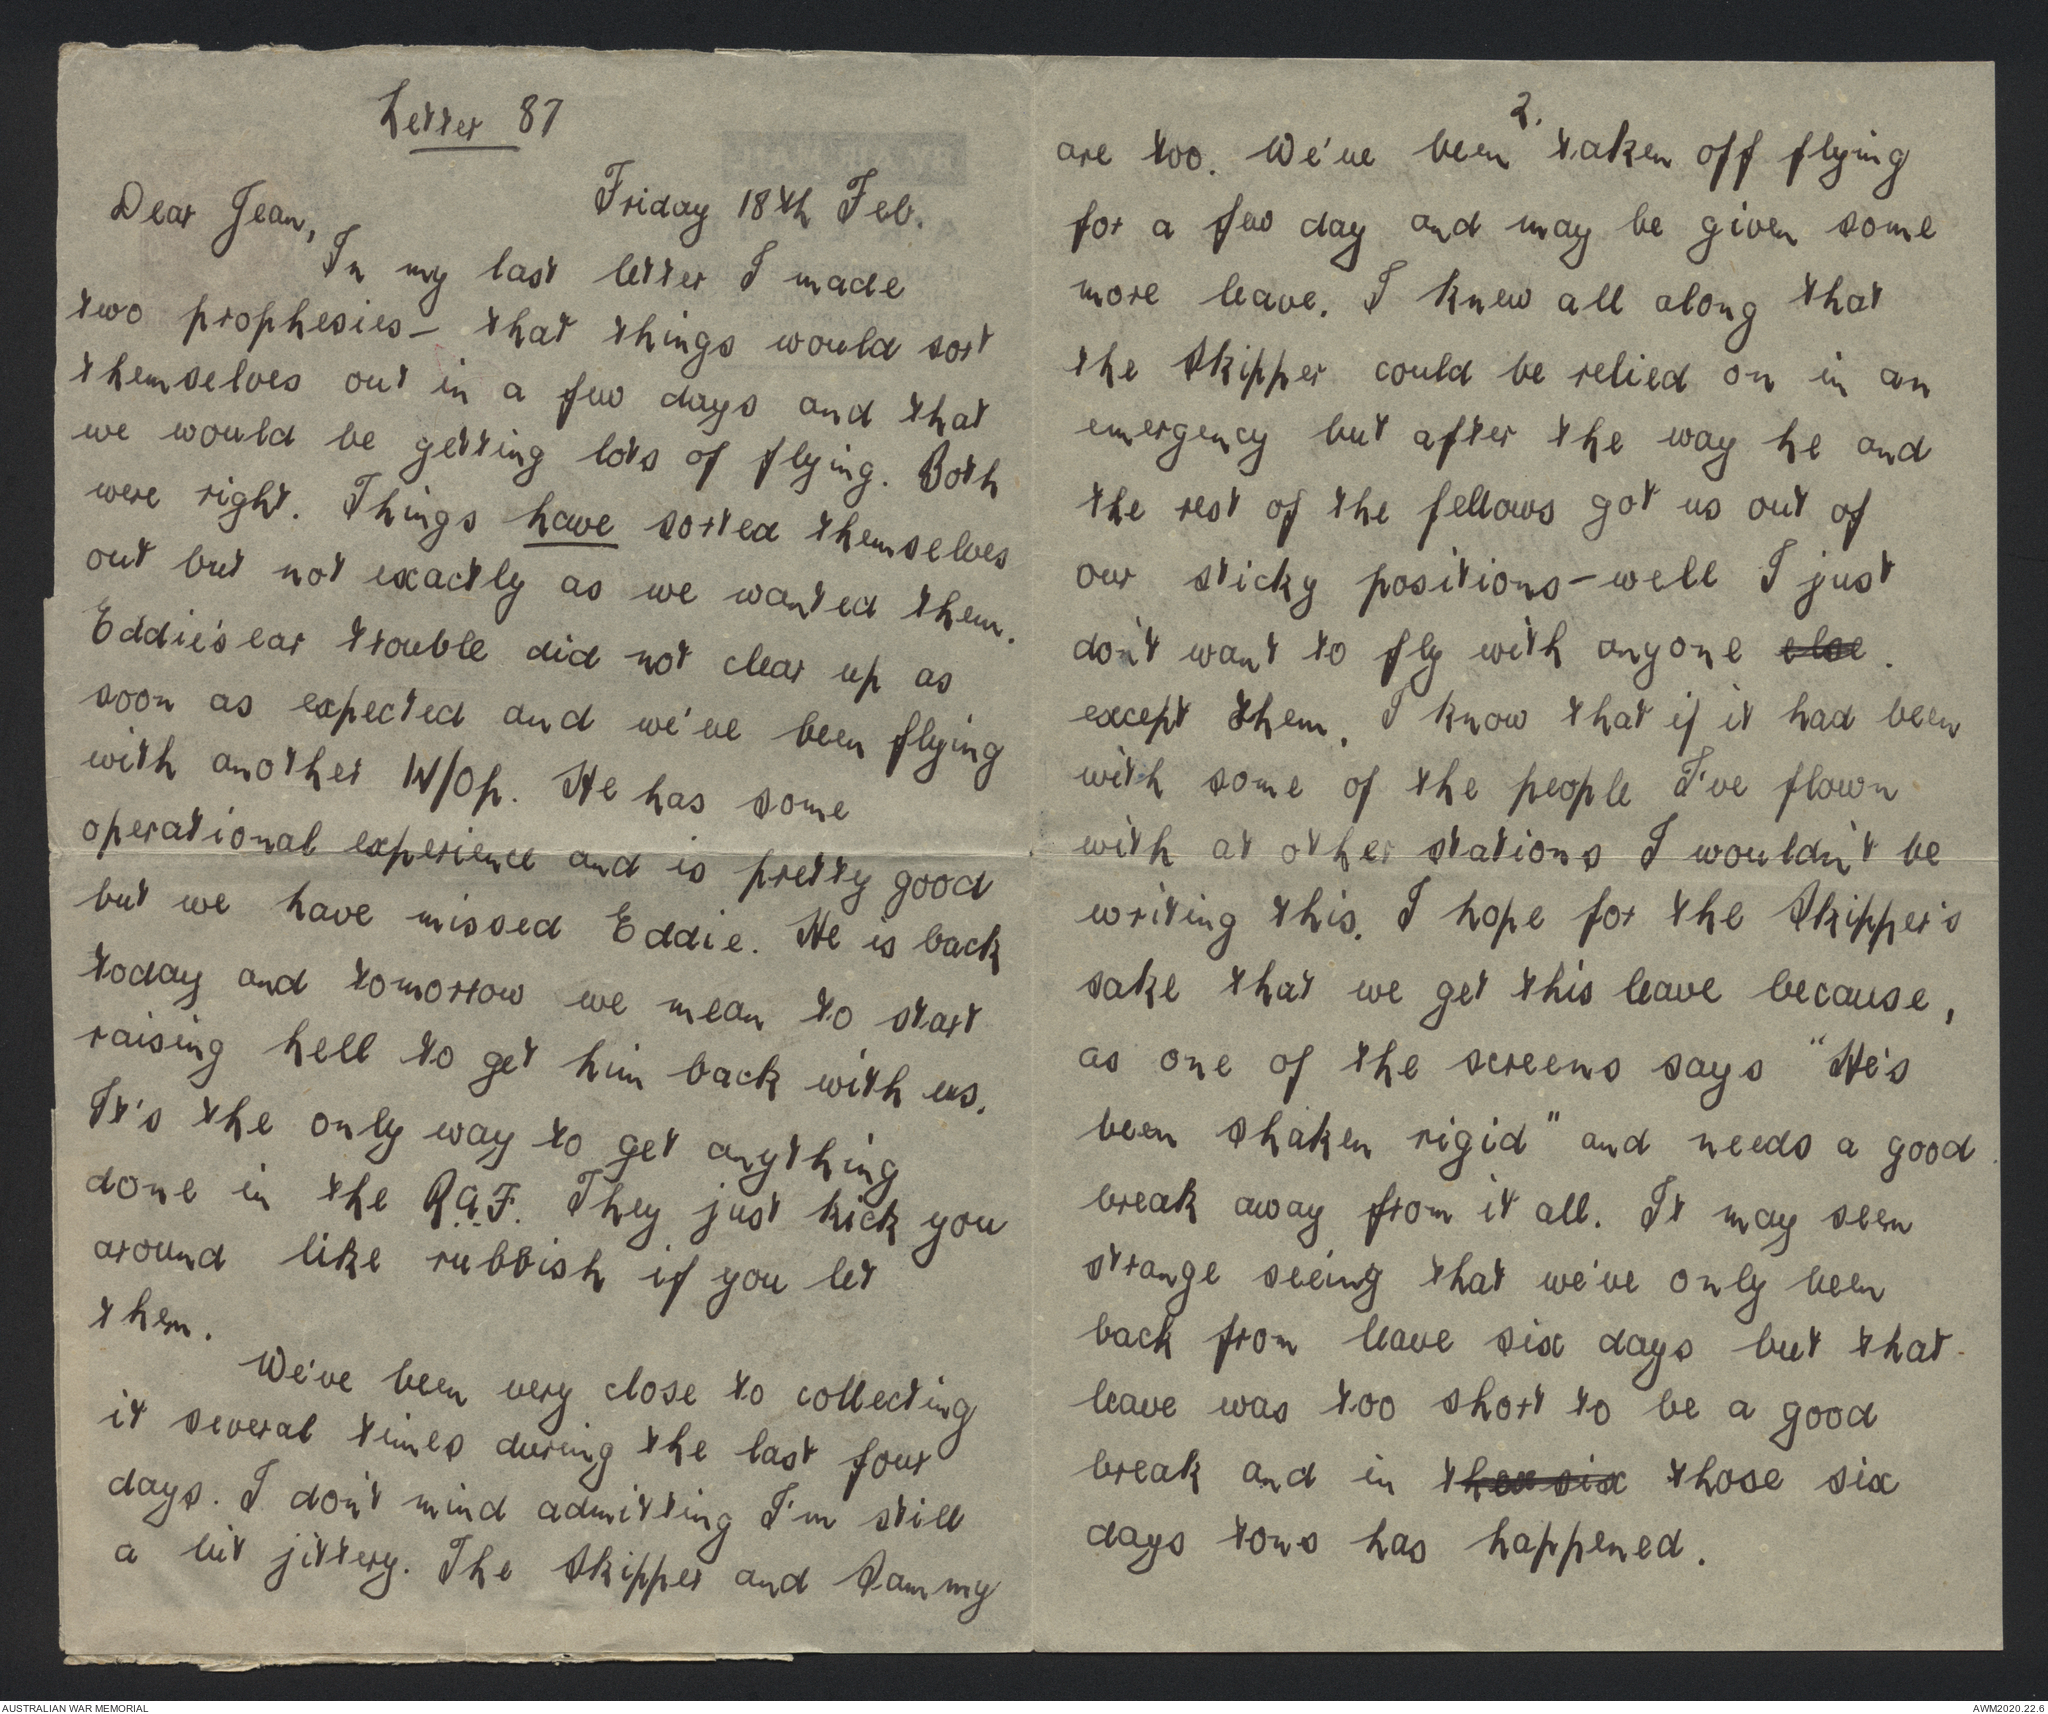 Letter 87
Friday 18th Feb.
Dear Jean,
In my last letter I made
two prophesies— that things would sort
themselves out in a few days and that
we would be getting lots of flying. Both
were right. Things have sorted themselves
out but not exactly as we wanted them.
Eddie's ear trouble did not clear up as
soon as expected and we've been flying
with another W/Op. He has some
operational experience and is pretty good
but we have missed Eddie. He is back
today and tomorrow we mean to start
raising hell to get him back with us.
It's the only way to get anything
done in the R.A.F. They just kick you
around like rubbish if you let
them.
We've been very close to collecting
it several times during the last four
days. I don't mind admitting I'm still
a bit jittery. The Skipper and Sammy
2.
are too. We've been taken off flying
for a few day and may be given some
more leave. I knew all along that
the Skipper could be relied on in an
emergency but after the way he and
the rest of the fellows got us out of
our sticky positions—well I just
don't want to fly with anyone else.
except them. I know that if it had been
with some of the people I've flown
with at other stations I wouldn't be
writing this. I hope for the Skipper's
sake that we get this leave because,
as one of the screens says "He's
been shaken rigid" and needs a good
break away from it all. It may seem
strange seeing that we've only been
back from leave six days but that
leave was too short to be a good
break and in those six
days tons has happened.
AUSTRALIAN WAR MEMORIAL
AWM2020.22.6